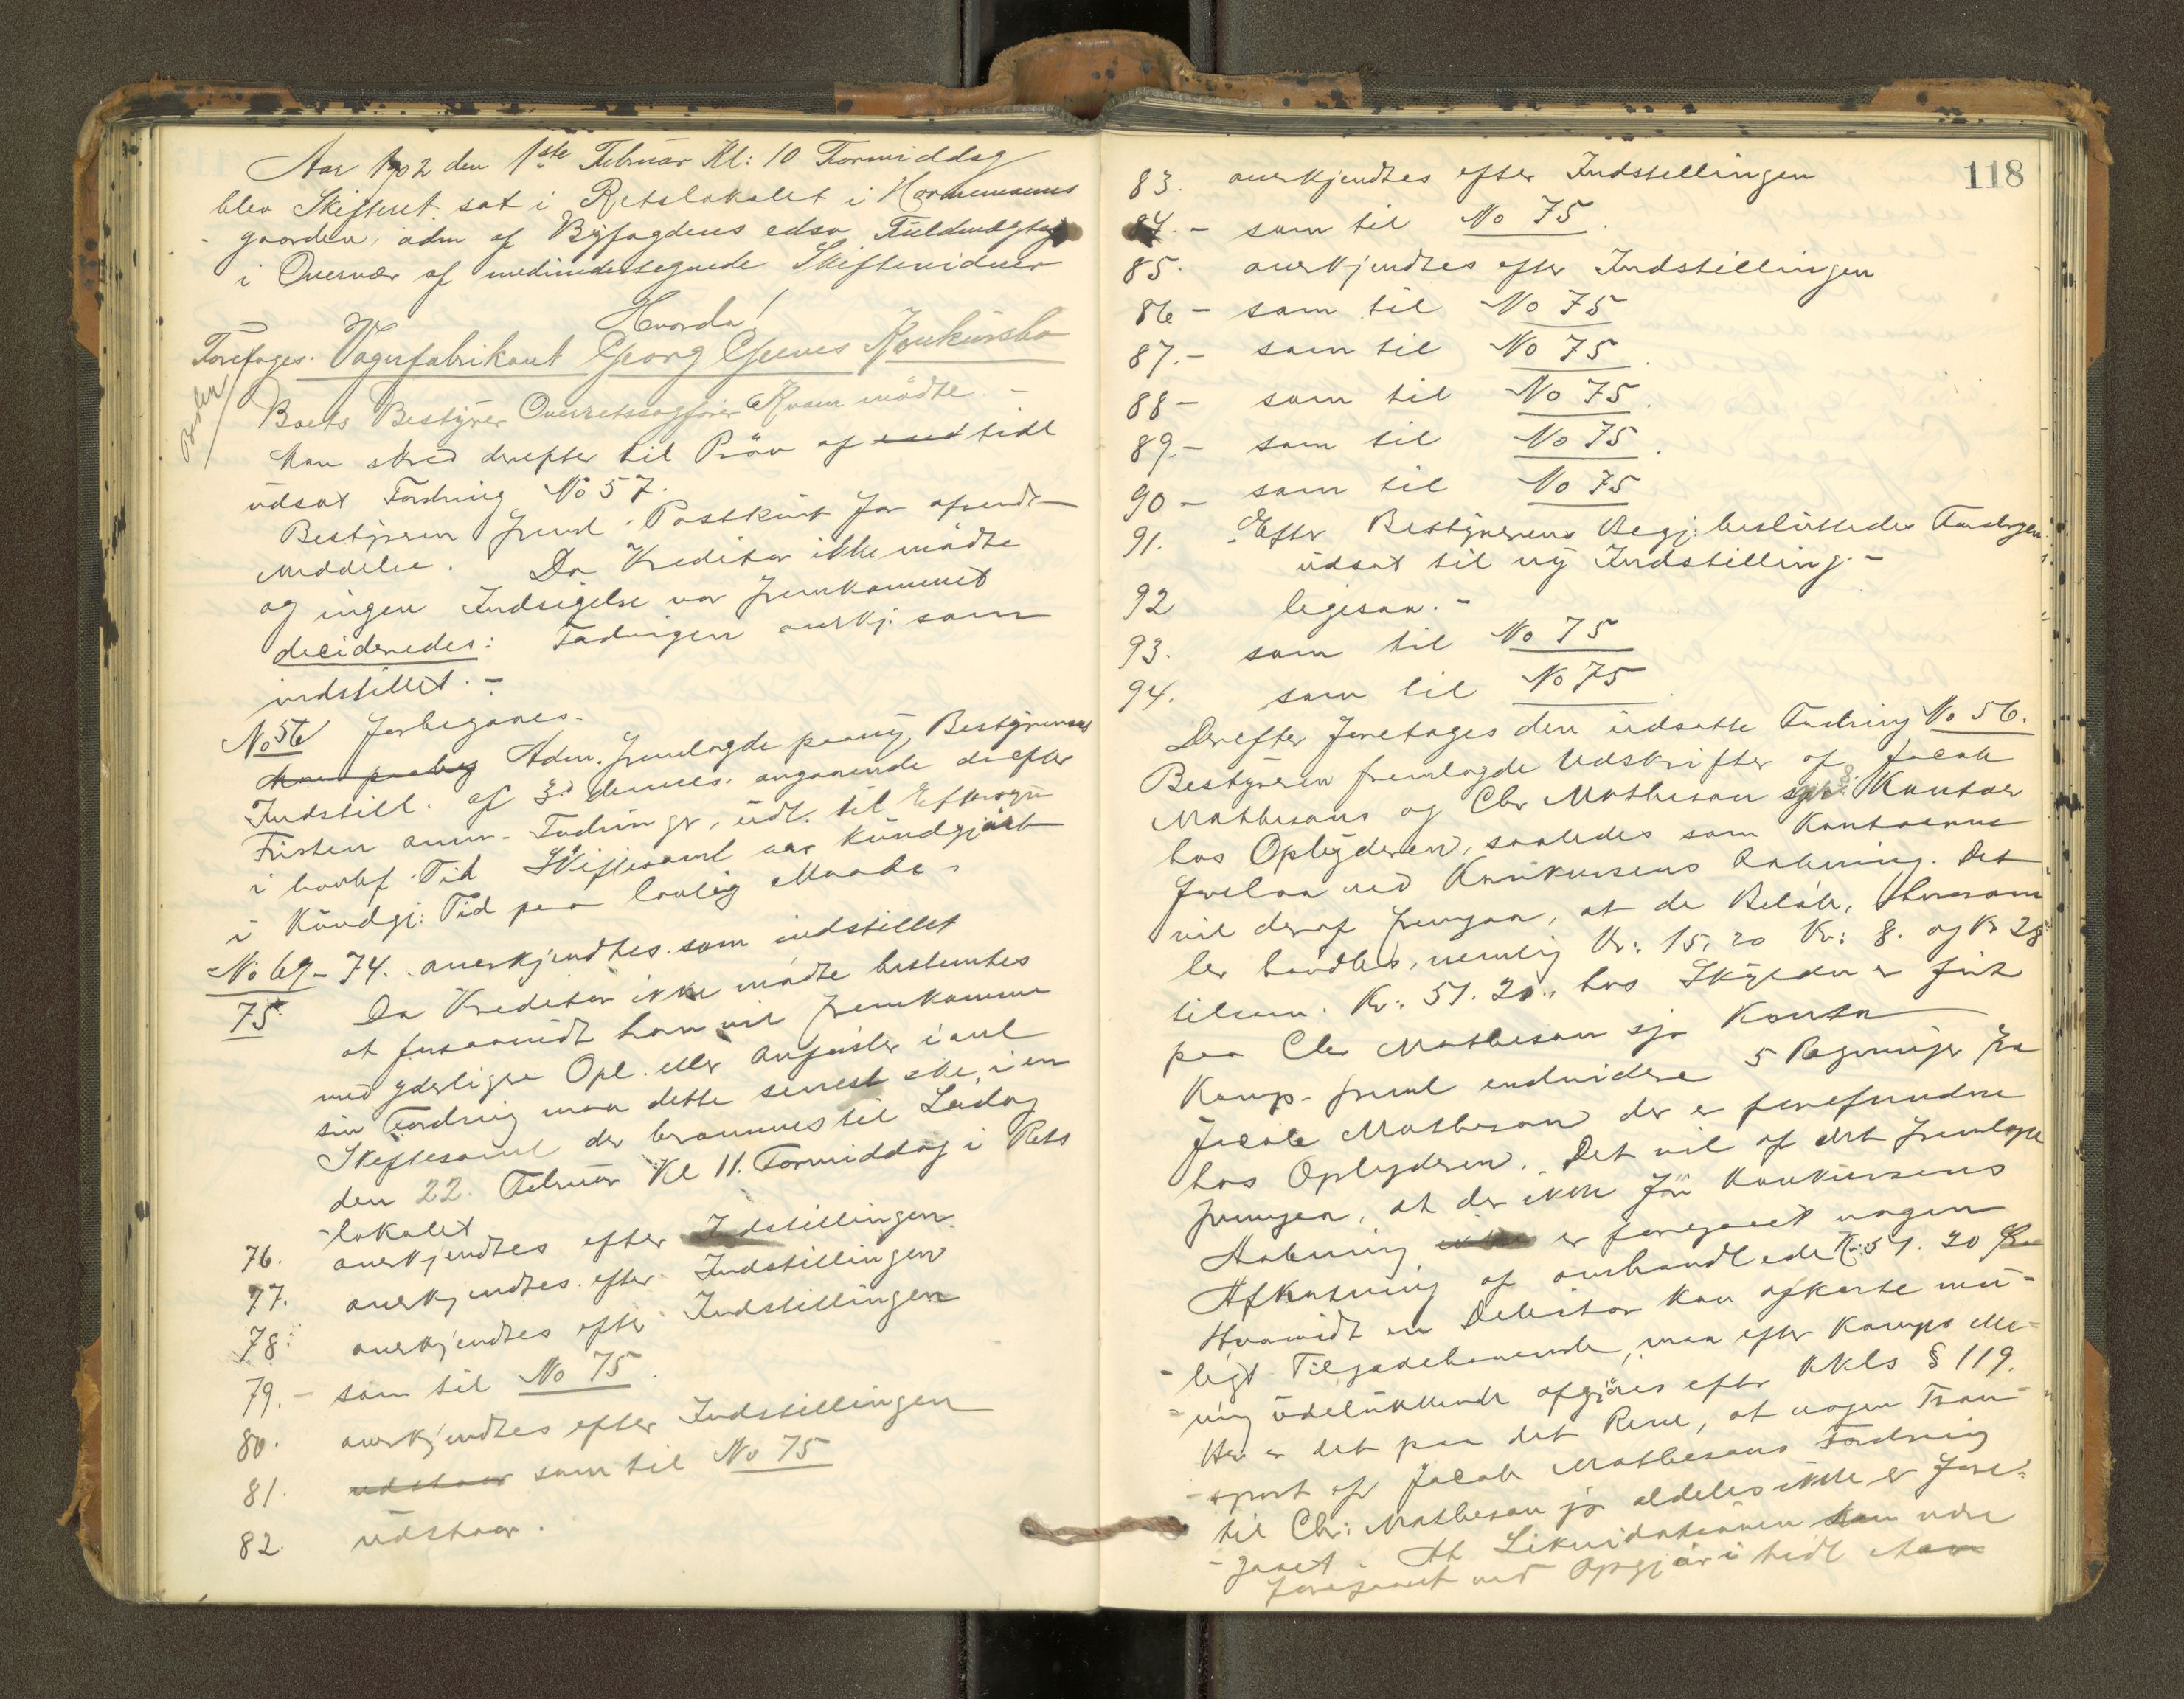 Aar 1902 den 1ste Februar Kl: 10 Formiddag
blev Skifteret sat i Retslokalet i Hornemans
gaarden, adm af Byfogdens edsv Fuldmægtig
i Overvær af medundertegnede Skiftevidner
Hvorda!
Foretages. Vognfabrikant Georg Konkursbo
Boets Bestyrer Overretssagfører Kvam mødte. -
Man skred derefter til Prøv af tidl
udsat Fordring No 57.
Bestyreren freml. Postkvit for afsendt
Meddelse. Da Kreditor ikke mødte
og ingen Indsigelse var fremkommet
decideredes: Fordringen anerkj. som
indstillet. -
No 56 forbigaaes.
Adm. fremlagde paany Bestyrerens
Indstill. af 3 dennes angaaende de efter
Fristen anm. Fordringr, udl. til Eftersyn
i lovbef. Tid Skiftesaml var kundgjort
i Kundgj: Tid paa lovlig Maade.
No 69 - 74. anerkjendtes som indstillet
75. Da Kreditor ikke mødte bestemtes
at forsaavidt han vil fremkomme
med yderligere Opl. eller Anførsler i anl
sin Fordring maa dette senest ske i en
Skiftesaml der berammes til Lørdag
den 22. Februar Kl 11. Formiddag i Rets
-lokalet
76. anerkjendtes efter Indstillingen
77. anerkjendtes efter Indstillingen
78. anerkjendtes efter Indstillingen
79. - som til No 75.
80. anerkjendtes efter Indstillingen
81. udstaar som til No 75
82. udstaar.
118
83. anerkjendtes efter Indstillingen
84. - som til No 75.
85. anerkjendtes efter Indstillingen
86 - som til No 75
87. - som til No 75.
88 - som til No 75.
89. - som til No 75.
90 - som til No 75
91. Efter Bestyrerens Begj: besluttedes Fordrgen
udsat til ny Indstilling. -
92 ligesaa. -
93. som til No 75
94. som til No 75
Derefter foretages den udsatte Fordring No 56.
Bestyreren fremlagde Udskrifter af Jacob
Mathesons og Chr Matheson Kontoer
hos Opbyderen, saaledes som Kontoerne
forelaa ved Konkursens Aabning. Det
vil deraf fremgaa, at de Beløb, hvorom
her handles, nemlig Kr: 15.20 Kr: 8. og Kr 28
tilsam. Kr: 51.20., hos Skyldner er ført
paa Chr Matheson sjr Konto
Komp. freml endvidere 5 Regninger fra
Jacob Matheson der er forefundne
hos Opbyderen. Det vil af det fremlagte
fremgaa, at der ikke før Konkursens
Aabning er foregaaet nogen
Afkortning af omhandlede Kr: 51.20
Hvorvidt en Debitor kan afkorte mu-
-ligt Tilgodehavende, maa efter Komps Me-
-ning udelukkende afgjøres efter KKls § 119.
Her er det paa det Rene, at nogen Tran-
-sport af Jacob Mathesons Fordring
til Chr: Matheson jr aldeles ikke er fore-
-gaaet. At Likvidationen kan være
foregaaet ved Opgjør i tidl